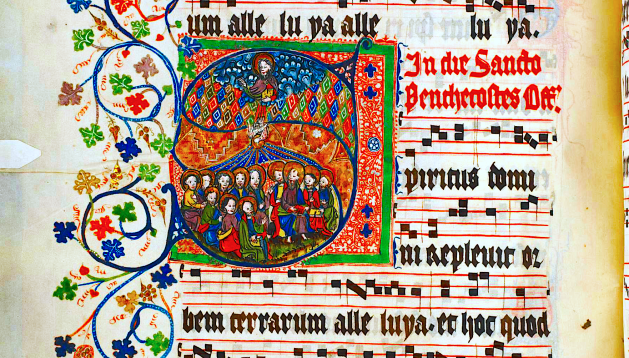 um alle lu ya alle lu ya.
In die Sancto
Penthecostes Off:
Spiritus domi
ni repleuit or
bem terrarum alle luya. et hoc quod